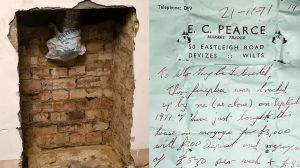 Telephone: Dev
21-11-71
E. C. PEARCE
MARKET TRADER
50 EASTLEIGH ROAD
DEVIZES :: WILTS
To Who May be Interested,
This fireplace was bricked
up by me (as above) on
1971 I have just bought this
house on mortgage for £3,000
with £700 Deposit and mortgage
of £5.70 per week +